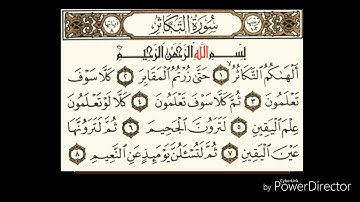 سُورَةُ التَّكَاثُرِ
بِسْمِ اللَّهِ الرَّحْمَٰنِ الرَّحِيمِ
أَلْهَىٰكُمُ التَّكَاثُرُ ١ حَتَّىٰ زُرْتُمُ الْمَقَابِرَ ٢ كَلَّا سَوْفَ
تَعْلَمُونَ ٣ ثُمَّ كَلَّا سَوْفَ تَعْلَمُونَ ٤ كَلَّا لَوْ تَعْلَمُونَ
عِلْمَ الْيَقِينِ ٥ لَتَرَوُنَّ الْجَحِيمَ ٦ ثُمَّ لَتَرَوُنَّهَا
عَيْنَ الْيَقِينِ ٧ ثُمَّ لَتُسْـَٔلُنَّ يَوْمَئِذٍ عَنِ النَّعِيمِ ٨
CyberLink
by PowerDirector